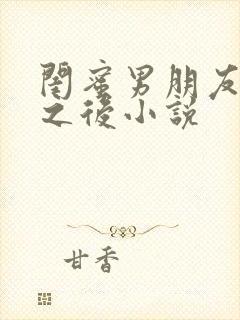 閨蜜男朋友
之後小説
甘香